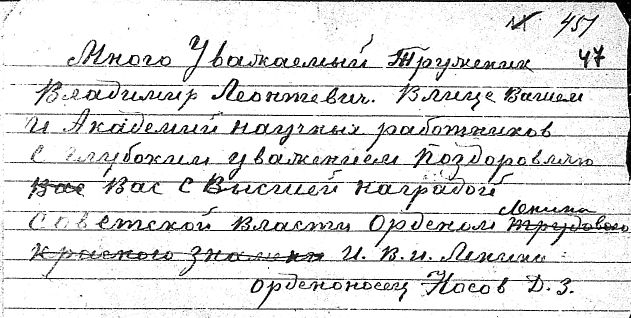 451
47
Много Уважаемый Труженик
Владимир Леонтевич. Влице Вашем
и Академий научных работников
с глубоким уважением Поздоровляю
Вас Вас с Высшей наградой
советской Власти Орденом Ленина Трудового
Красного Знамени И. В. и. Ленина
орденоносец Носов Д. З.